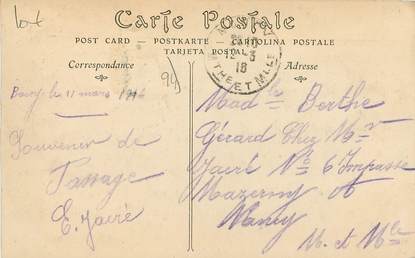 Carte Postale
POST CARD — POSTKARTE — CARTOLINA POSTALE
TARJETA POSTAL
Correspondance
Adresse
le 11 mars 1916
Souvenir de
Passage
E. Jairé
12 - 3
16
THE ET MLLE
94
Madelle Berthe
Gérard Chez Mr
Jairé No 6 Impasse
Mazerny
Nancy
M. et Mlle